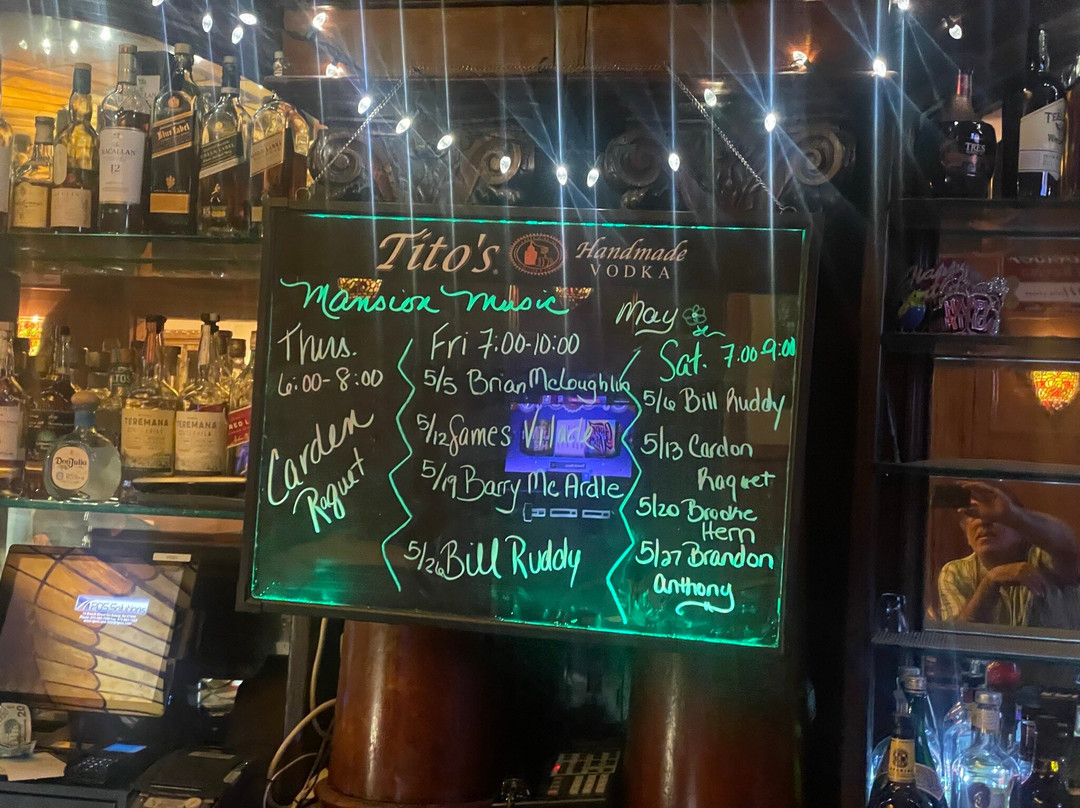 Tito's Handmade
VODKA
Mansion Music
May
Thurs.
6:00-8:00
Carden
Raquet
Fri 7:00-10:00
5/5 Brian McLoughlin
5/12 James
5/19 Barry Mc Ardle
5/26 Bill Ruddy
Sat. 7:00-9:00
5/6 Bill Ruddy
5/13 Cardon
Raquet
5/20 Brooke
Hern
5/27 Brandon
Anthony
Blue Label
MACALLAN
12
TEREMANA
TEREMANA
Don Julio
RED
POS Solutions
TRES
20